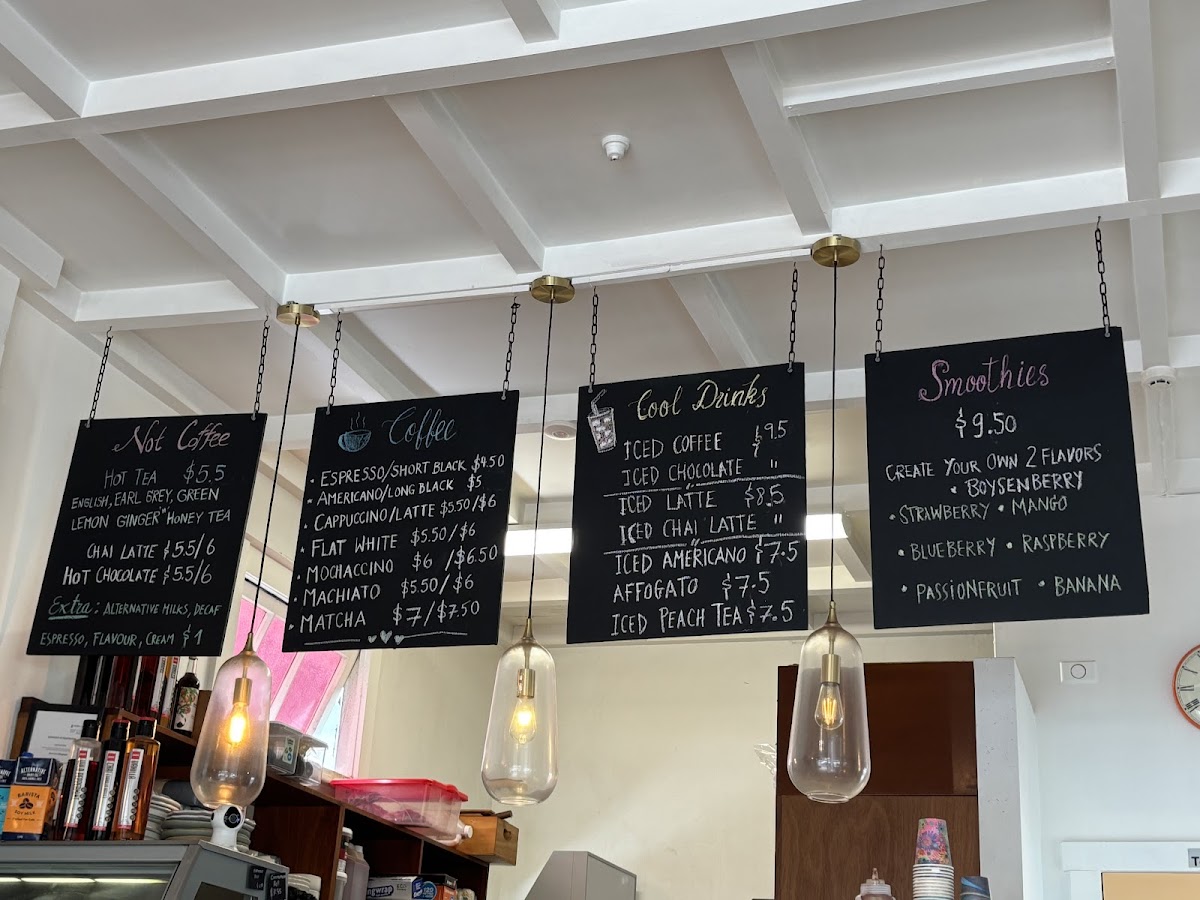 Not Coffee
HOT TEA $5.5
ENGLISH, EARL GREY, GREEN
LEMON GINGER "HONEY TEA
CHAI LATTE $5.5/6
HOT CHOCOLATE $5.5/6
Extra: ALTERNATIVE MILKS, DECAF
ESPRESSO, FLAVOUR, CREAM $1
Coffee
• ESPRESSO/SHORT BLACK $4.50
• AMERICANO/LONG BLACK $5
• CAPPUCCINO/LATTE $5.50/$6
• FLAT WHITE $5.50/$6
• MOCHACCINO $6 /$6.50
• MACHIATO $5.50/$6
• MATCHA $7/$7.50
Cool Drinks
ICED COFFEE $9.5
ICED CHOCOLATE "
ICED LATTE $8.5
ICED CHAI LATTE "
ICED AMERICANO $7.5
AFFOGATO $7.5
ICED PEACH TEA $7.5
Smoothies
$9.50
CREATE YOUR OWN 2 FLAVORS
• BOYSENBERRY
• STRAWBERRY • MANGO
• BLUEBERRY • RASPBERRY
• PASSIONFRUIT • BANANA
ALTERNATIVE
BARISTA